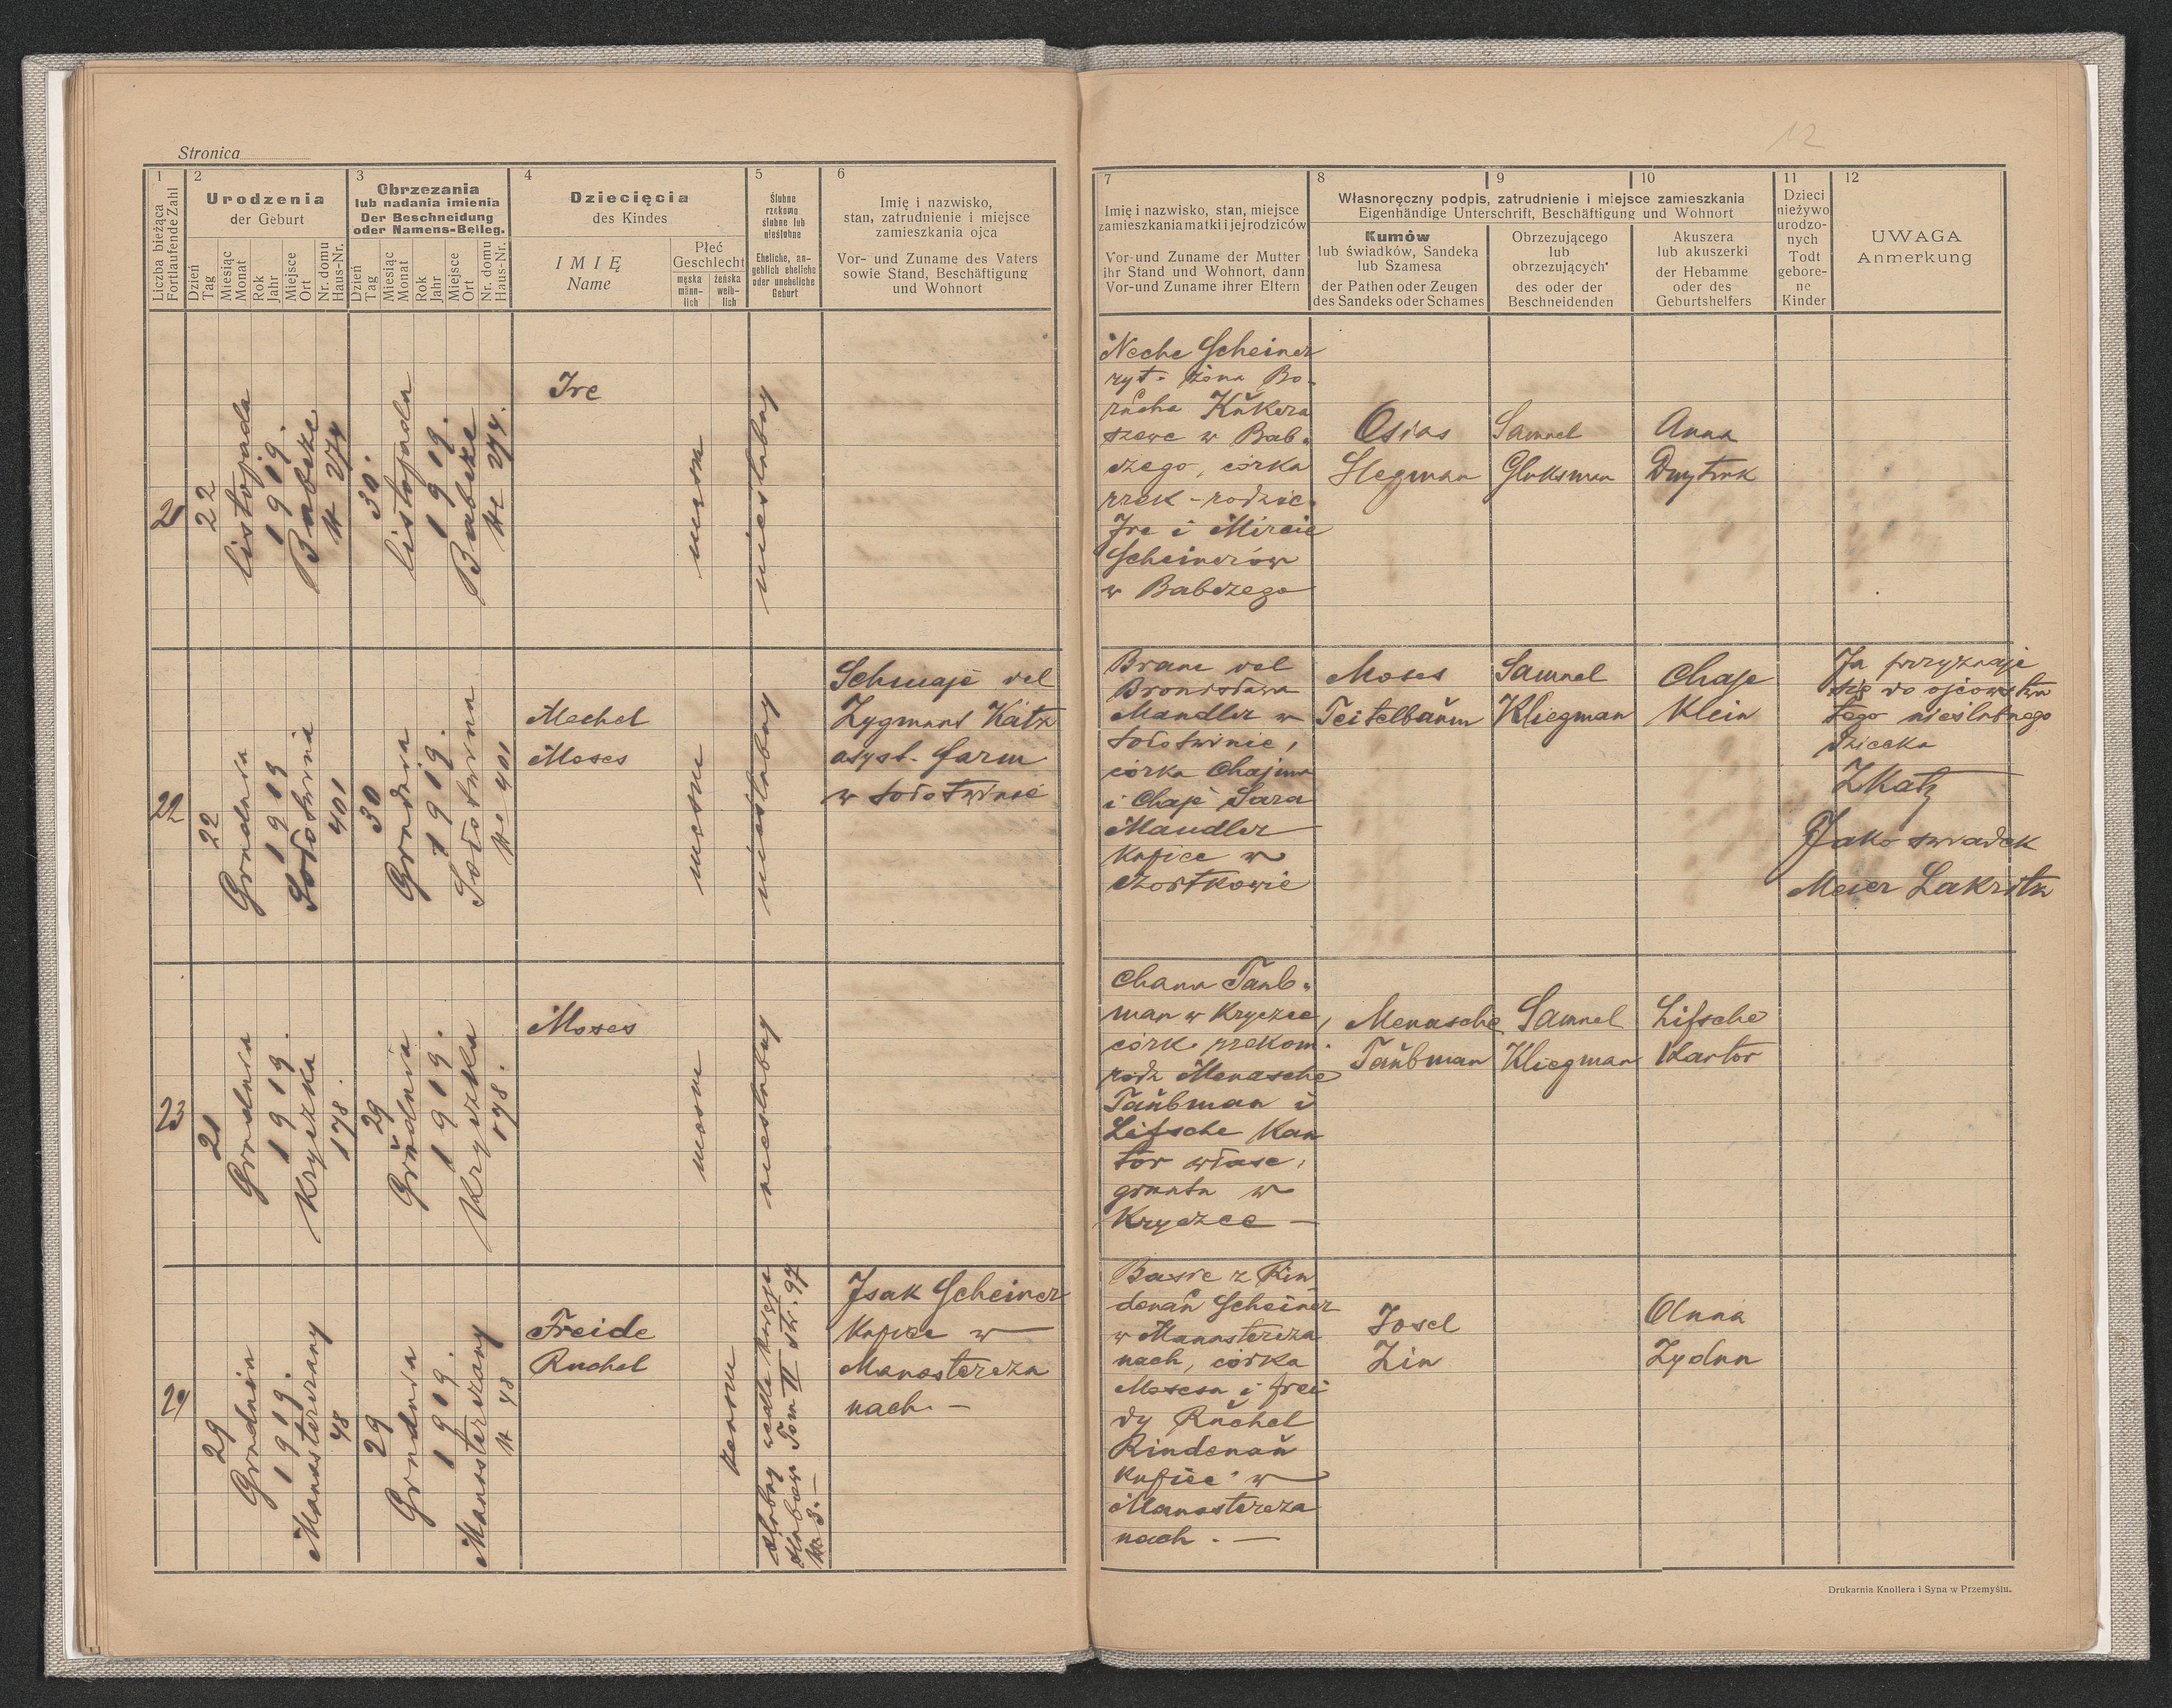 Stronica
12
1
Liczba bieżąca
Fortlaufende Zahl
2
Urodzenia
der Geburt
Dzień
Tag
Miesiąc
Monat
Rok
Jahr
Miejsce
Ort
Nr. domu
Haus-Nr.
3
Obrzezania
lub nadania imienia
Der Beschneidung
oder Namens-Beileg.
Dzień
Tag
Miesiąc
Monat
Rok
Jahr
Miejsce
Ort
Nr. domu
Haus-Nr.
4
Dziecięcia
des Kindes
IMIĘ
Name
Płeć
Geschlecht
męska
männ-
lich
żeńska
weib-
lich
5
Ślubne
rzekomo
ślubne lub
nieślubne
Eheliche, an-
geblich eheliche
oder uneheliche
Geburt
6
Imię i nazwisko,
stan, zatrudnienie i miejsce
zamieszkania ojca
Vor- und Zuname des Vaters
sowie Stand, Beschäftigung
und Wohnort
7
Imię i nazwisko, stan, miejsce
zamieszkania matki i jej rodziców
Vor-und Zuname der Mutter
ihr Stand und Wohnort, dann
Vor-und Zuname ihrer Eltern
8
9
10
Własnoręczny podpis, zatrudnienie i miejsce zamieszkania
Eigenhändige Unterschrift, Beschäftigung und Wohnort
Kumów
lub świadków, Sandeka
lub Szamesa
der Pathen oder Zeugen
des Sandeks oder Schames
Obrzezującego
lub
obrzezujących
des oder der
Beschneidenden
Akuszera
lub akuszerki
der Hebamme
oder des
Geburtshelfers
11
Dzieci
nieżywo
urodzo-
nych
Todt
gebore-
ne
Kinder
12
UWAGA
Anmerkung
21
22
listopada
1919.
Babcze
N 274
30.
listopada
1919.
Babcze
Nr 274.
Ire
męska
nieslubny
Neche Scheiner
ryt. żona Bo-
rucha Kukera
szewc w Bab-
czego, córka
rzek - rodzic.
Ire i Mircie
Scheinerów
w Babczego
Osias
Stegman
Samuel
Gluksman
Anna
Dmytruk
22
22
Grudnia
1919
Sołotwina
401
30
Grudnia
1919.
Sołotwina
Nr 401
Mechel
Moses
nieslubny
Schmaje vel
Zygmunt Katz
asyst. farm
w Sołotwinie
Brane vel
Bronisława
Mandler w
Sołotwinie,
córka Chajma
i Chaje Sara
Mandler
kupiec w
Czortkowie
Moses
Teitelbaum
Samuel
Kliegman
Chaje
Klein
Ja przyznaje
się do ojcowstwa
tego nieślubnego
dziecka
ZKatz
Jako swiadek
Meier Lakritz
23
21
Grudnia
1919.
Kryczka
178.
29
Grudnia
1919.
Kryczka
178.
Moses
nieslubny
Chana Taub-
man w Kryczce,
córk. rzekom.
rodz Menasche
Taubman i
Lifsche Kan
tor własc.
gruntu w
Kryczce —
Menasche
Taubman
Samuel
Kliegman
Lifsche
Kantor
24
29
Grudnia
1919.
Manasterczany
48
29
Grudnia
1919.
Manasterczany
N 48
Freide
Ruchel
slubny wedle księgi
slubów Tom II str. 97
Nr 3. —
Isak Scheiner
kupiec w
Manastercza
nach. —
Basie z Rin
denau Scheiner
w Manastercza
nach, córka
Mosesa i Frei
dy Ruchel
Rindenau
kupiec w
Manastercza
nach. —
Josel
Zin
Anna
Drukarnia Knollera i Syna w Przemyślu.